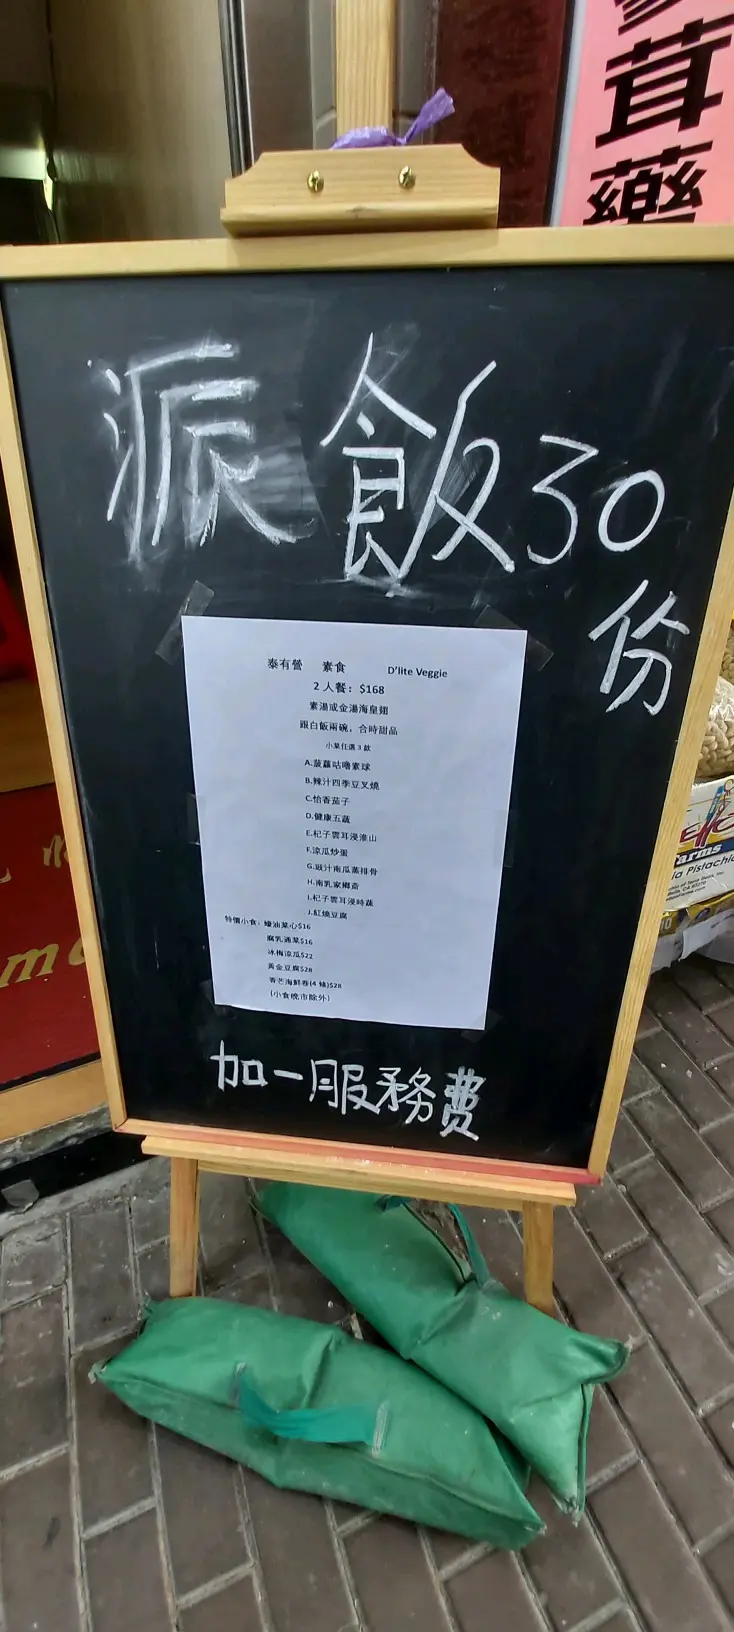 茸藥
派飯30
份
泰有營 素食 D'lite Veggie
2 人餐：$168
素湯或金湯海皇翅
跟白飯兩碗，合時甜品
小菜任選 3 款
A.菠蘿咕嚕素球
B.辣汁四季豆叉燒
C.怡香茄子
D.健康五蔬
E.杞子雲耳浸淮山
F.涼瓜炒蛋
G.豉汁南瓜蒸排骨
H.南乳家鄉齋
I.杞子雲耳浸時蔬
J.紅燒豆腐
特價小食：蠔油菜心$16
腐乳通菜$16
冰梅涼瓜$22
黃金豆腐$28
香芒海鮮卷(4 條)$28
(小食晚市除外)
加一服務費
arms
Pistachio